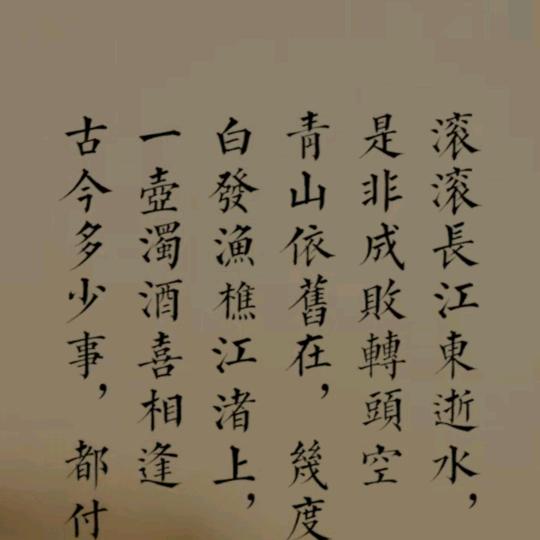 滾滾長江東逝水，
是非成敗轉頭空
青山依舊在，幾度
白發漁樵江渚上，
一壺濁酒喜相逢
古今多少事，都付